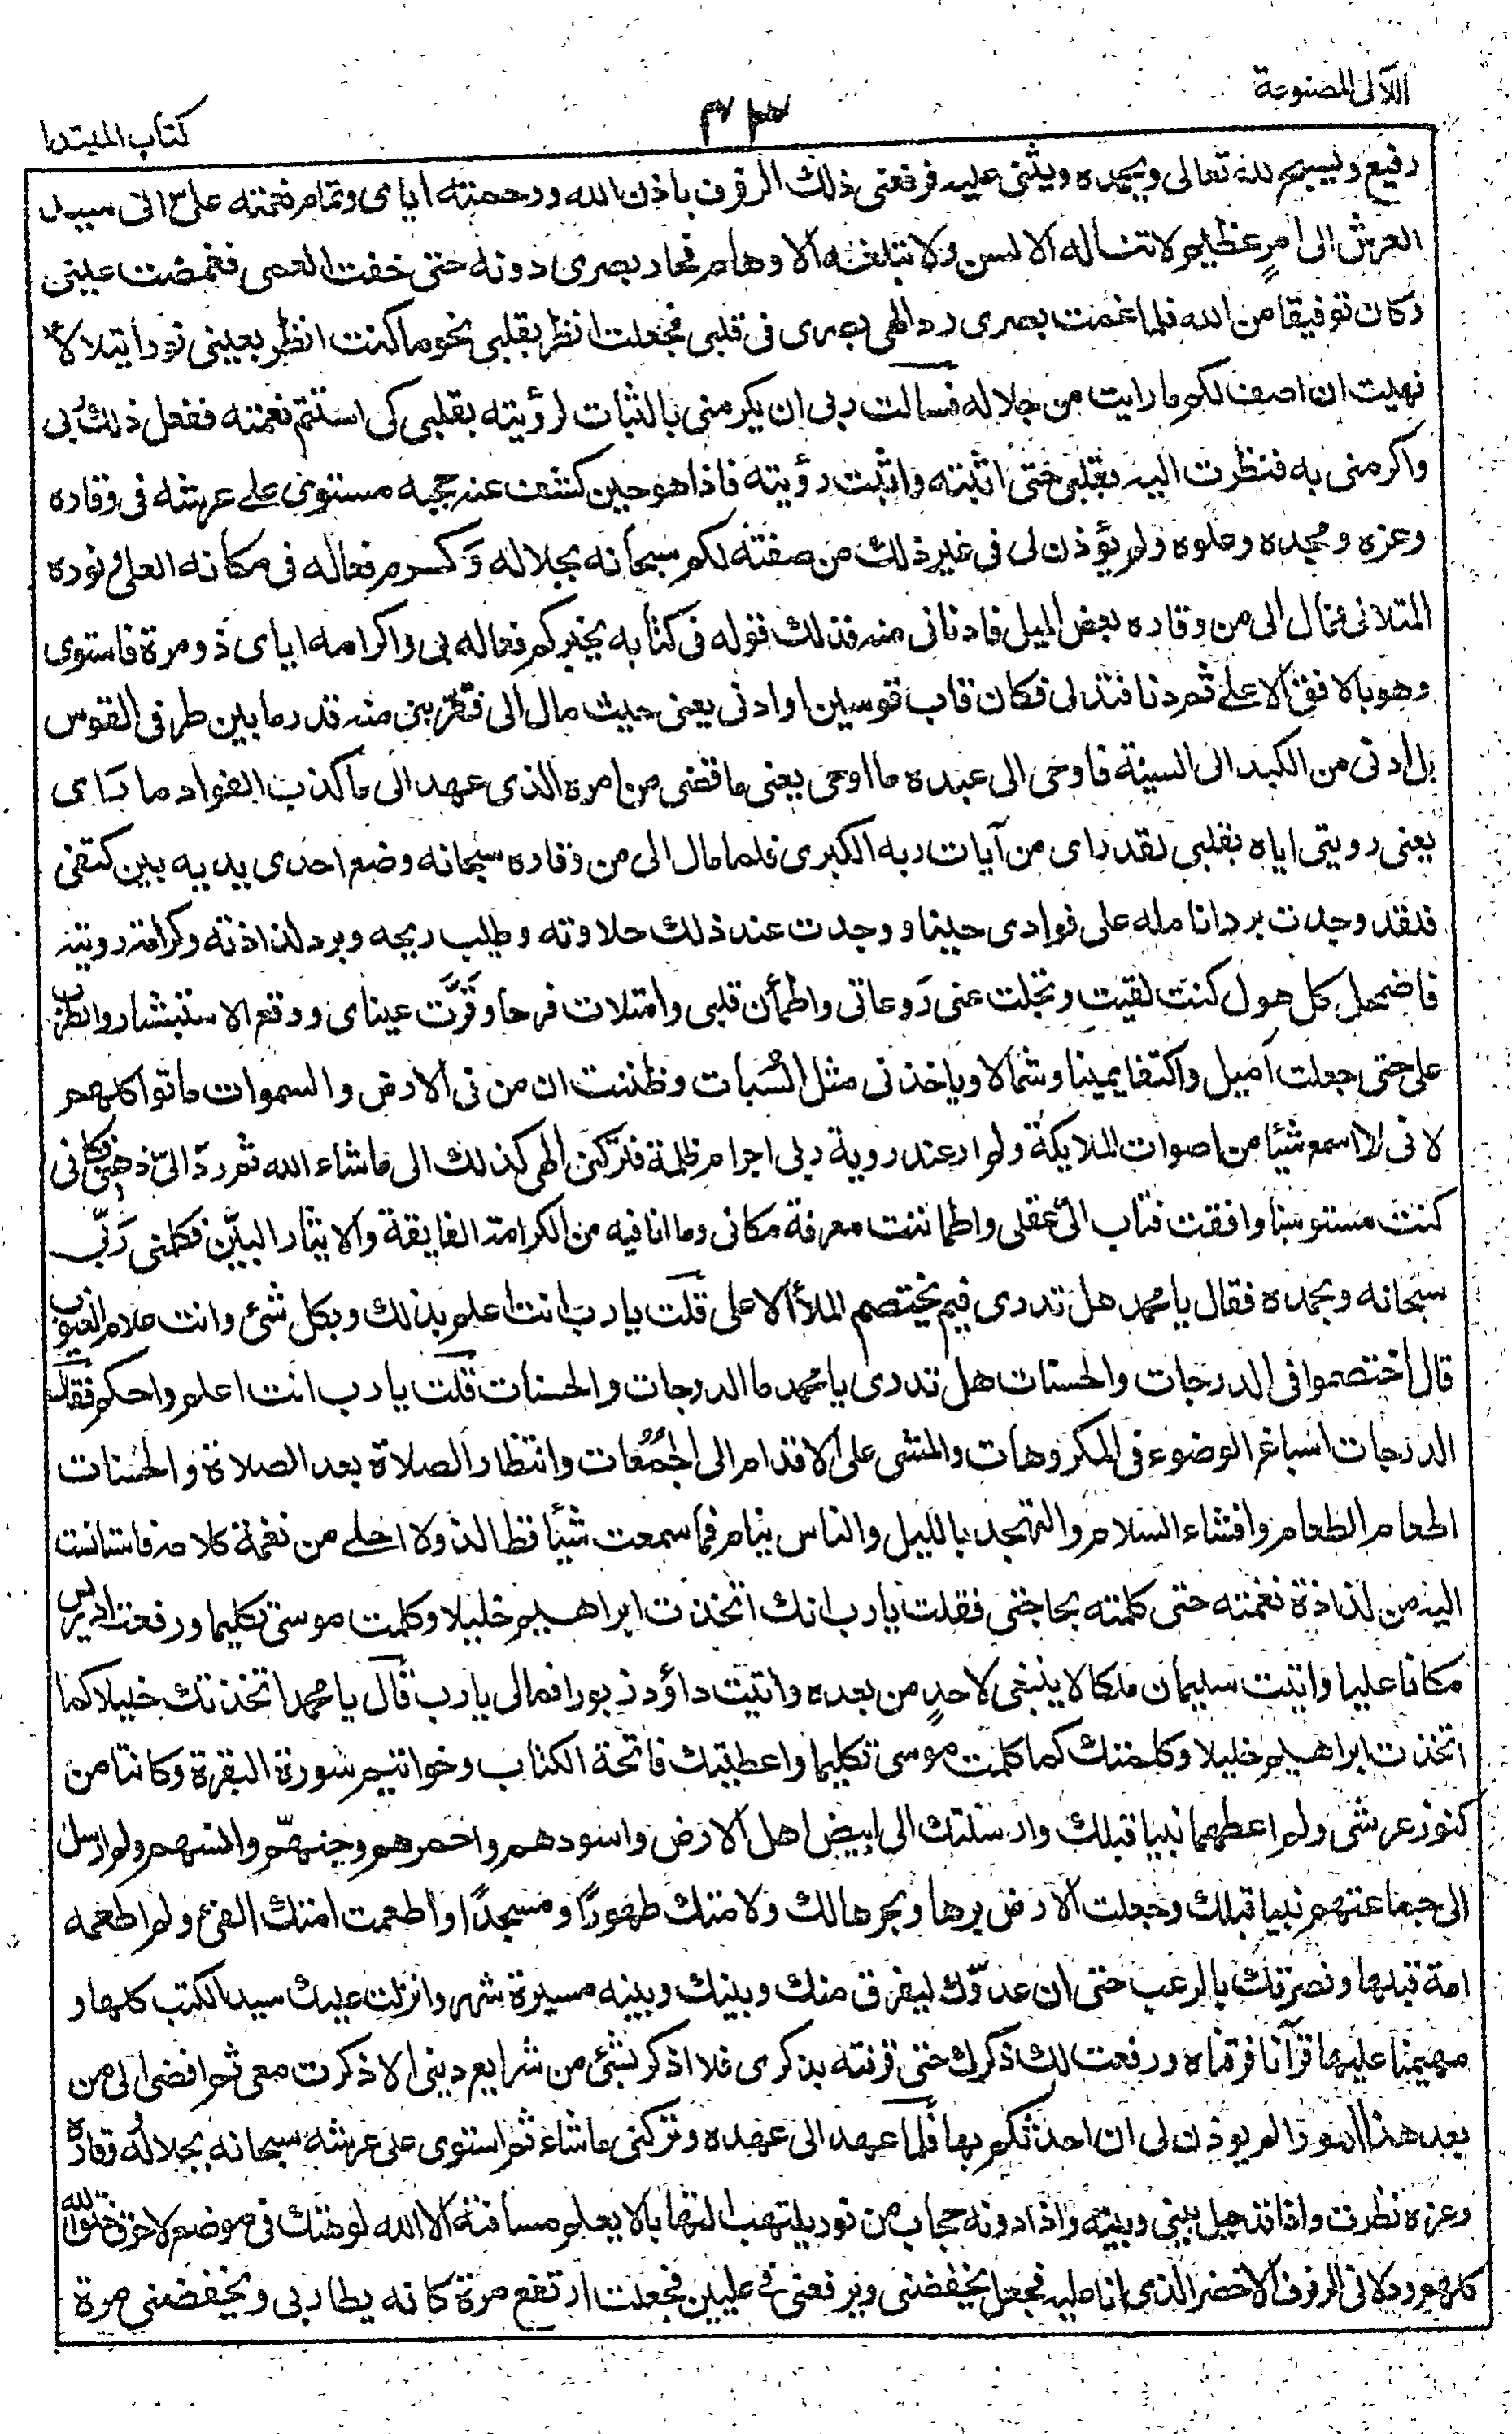 اللآلى المصنوعة
٤٣
كتاب المبتدا
رفيع وليسبح لله تعالى ويحمده ويثنى عليه فرفعنى ذلك الرفرف باذن الله ورحمته اياى وتمام نعمته على الى سيدل
العرش الى امرٍ عظيم لا تناله الالسن ولا تبلغه الاوهام فحار بصرى دونه حتى خفت العمى فغمضت عينى
وكان توفيقا من الله فلما غمت بصرى رد الهى بصرى فى قلبى فجعلت انظر بقلبى نحو ما كنت انظر بعينى نورا يتلالأ
نهيت ان اصف لكم ما رايت من جلاله فسالت ربى ان يكرمنى بالثبات لرؤيته بقلبى كى استتم نعمته ففعل ذلك ربى
واكرمنى به فنظرت اليه بقلبى حتى اثبته واثبت رؤيته فاذا هو حين كشف عنه حجبه مستوى على عرشه فى وقاره
وعزه ومجده وعلوه ولم يؤذن لى فى غير ذلك من صفته لكم سبحانه بجلاله وكرم فعاله فى مكانه العلى ونوره
المتلانى فمال الى من وقاره بعض الميل فادنانى منه فذلك قوله فى كتابه يخبركم فعاله بى واكرامه اياى ذو مرة فاستوى
وهو بالافق الاعلى ثم دنا فتدلى فكان قاب قوسين او ادنى يعنى حيث مال الى فقرّبنى منه قدر ما بين طرفى القوس
بل ادنى من الكبد الى السية فاوحى الى عبده ما اوحى يعنى ما قضى من امره الذى عهد الى ما كذب الفواد ما راى
يعنى رويتى اياه بقلبى لقد راى من آيات ربه الكبرى فلما مال الى من وقاره سبحانه وضع احدى يديه بين كتفى
فلقد وجدت برد انامله على فوادى حينا ووجدت عند ذلك حلاوته وطيب ريحه وبرد لذاذته وكرامة رويته
فاضمحل كل هول كنت لقيت وتجلت عنى روعاتى واطمأن قلبى وامتلات فرحا وقرّت عيناى ووقع الاستبشار والطرب
على حتى جعلت اميل واكتفا يمينا وشمالا وياخذنى مثل السُبات وظننت ان من فى الارض والسموات ماتوا كلهم
لانى لا اسمع شيئا من اصوات الملايكة ولم ار عند روية ربى اجرام ظلمة فتركنى الهى كذلك الى ما شاء الله ثم ردّ الىّ ذهنى فكانى
كنت مستوسنا وافقت فثاب الىّ عقلى واطماننت معرفة مكانى وما انا فيه من الكرامة الفايقة والايثار البيّن فكلمنى ربّى
سبحانه وبحمده فقال يا محمد هل تدرى فيم يختصم الملأ الاعلى قلت يا رب انت اعلم بذلك وبكل شئ وانت علام الغيوب
قال اختصموا فى الدرجات والحسنات هل تدرى يا محمد ما الدرجات والحسنات قلت يا رب انت اعلم واحكم فقال
الدرجات اسباغ الوضوء فى المكروهات والمشى على الاقدام الى الجُمُعات وانتظار الصلاة بعد الصلاة والحسنات
اطعام الطعام وافشاء السلام والتهجد بالليل والناس نيام فما سمعت شيئا قط الذ ولا احلى من نغمة كلامه فاستانست
اليه من لذاذة نغمته حتى كلمته بحاجتى فقلت يا رب انك اتخذت ابراهيم خليلا وكلمت موسى تكليما ورفعت ادريس
مكانا عليا واتيت سليمان ملكا لا ينبغى لاحدٍ من بعده واتيت داؤد زبورا فمالى يا رب قال يا محمد اتخذتك خليلا كما
اتخذت ابراهيم خليلا وكلمتك كما كلمت موسى تكليما واعطيتك فاتحة الكتاب وخواتيم سورة البقرة وكانتا من
كنوز عرشى ولم اعطهما نبيا قبلك وارسلتك الى ابيض اهل الارض واسودهم واحمرهم وجنهم وانسهم ولم ارسل
الى جماعتهم نبيا قبلك وجعلت الارض برها وبحرها لك ولامتك طهورًا ومسجدًا واطعمت امتك الفئ ولم اطعمه
امة قبلها ونصرتك بالرعب حتى ان عدوّك ليفرق منك وبينك وبينه مسيرة شهر وانزلت عليك سيد الكتب كلها و
مهيمنا عليها قرآنا فرقناه ورفعت لك ذكرك حتى قرنته بذكرى فلا اذكر بشئ من شرايع دينى الا ذكرت معى ثم افضى الى من
بعد هذا امور لم يوذن لى ان احدثكم بها فلما عهد الى عهده وتركنى ما شاء ثم استوى على عرشه سبحانه بجلاله ووقاره
وعزه نظرت واذا قد حيل بينى وبينه واذا دونه حجاب من نور يلتهب التهابا لا يعلم مسافته الا الله لو هتك فى موضع لاحرق خلق الله
كلهم ودلانى الرفرف الاخضر الذى انا عليه فجعل يخفضنى ويرفعنى فى عليين فجعلت ارتفع مرة كانه يطار بى ويخفضنى مرة